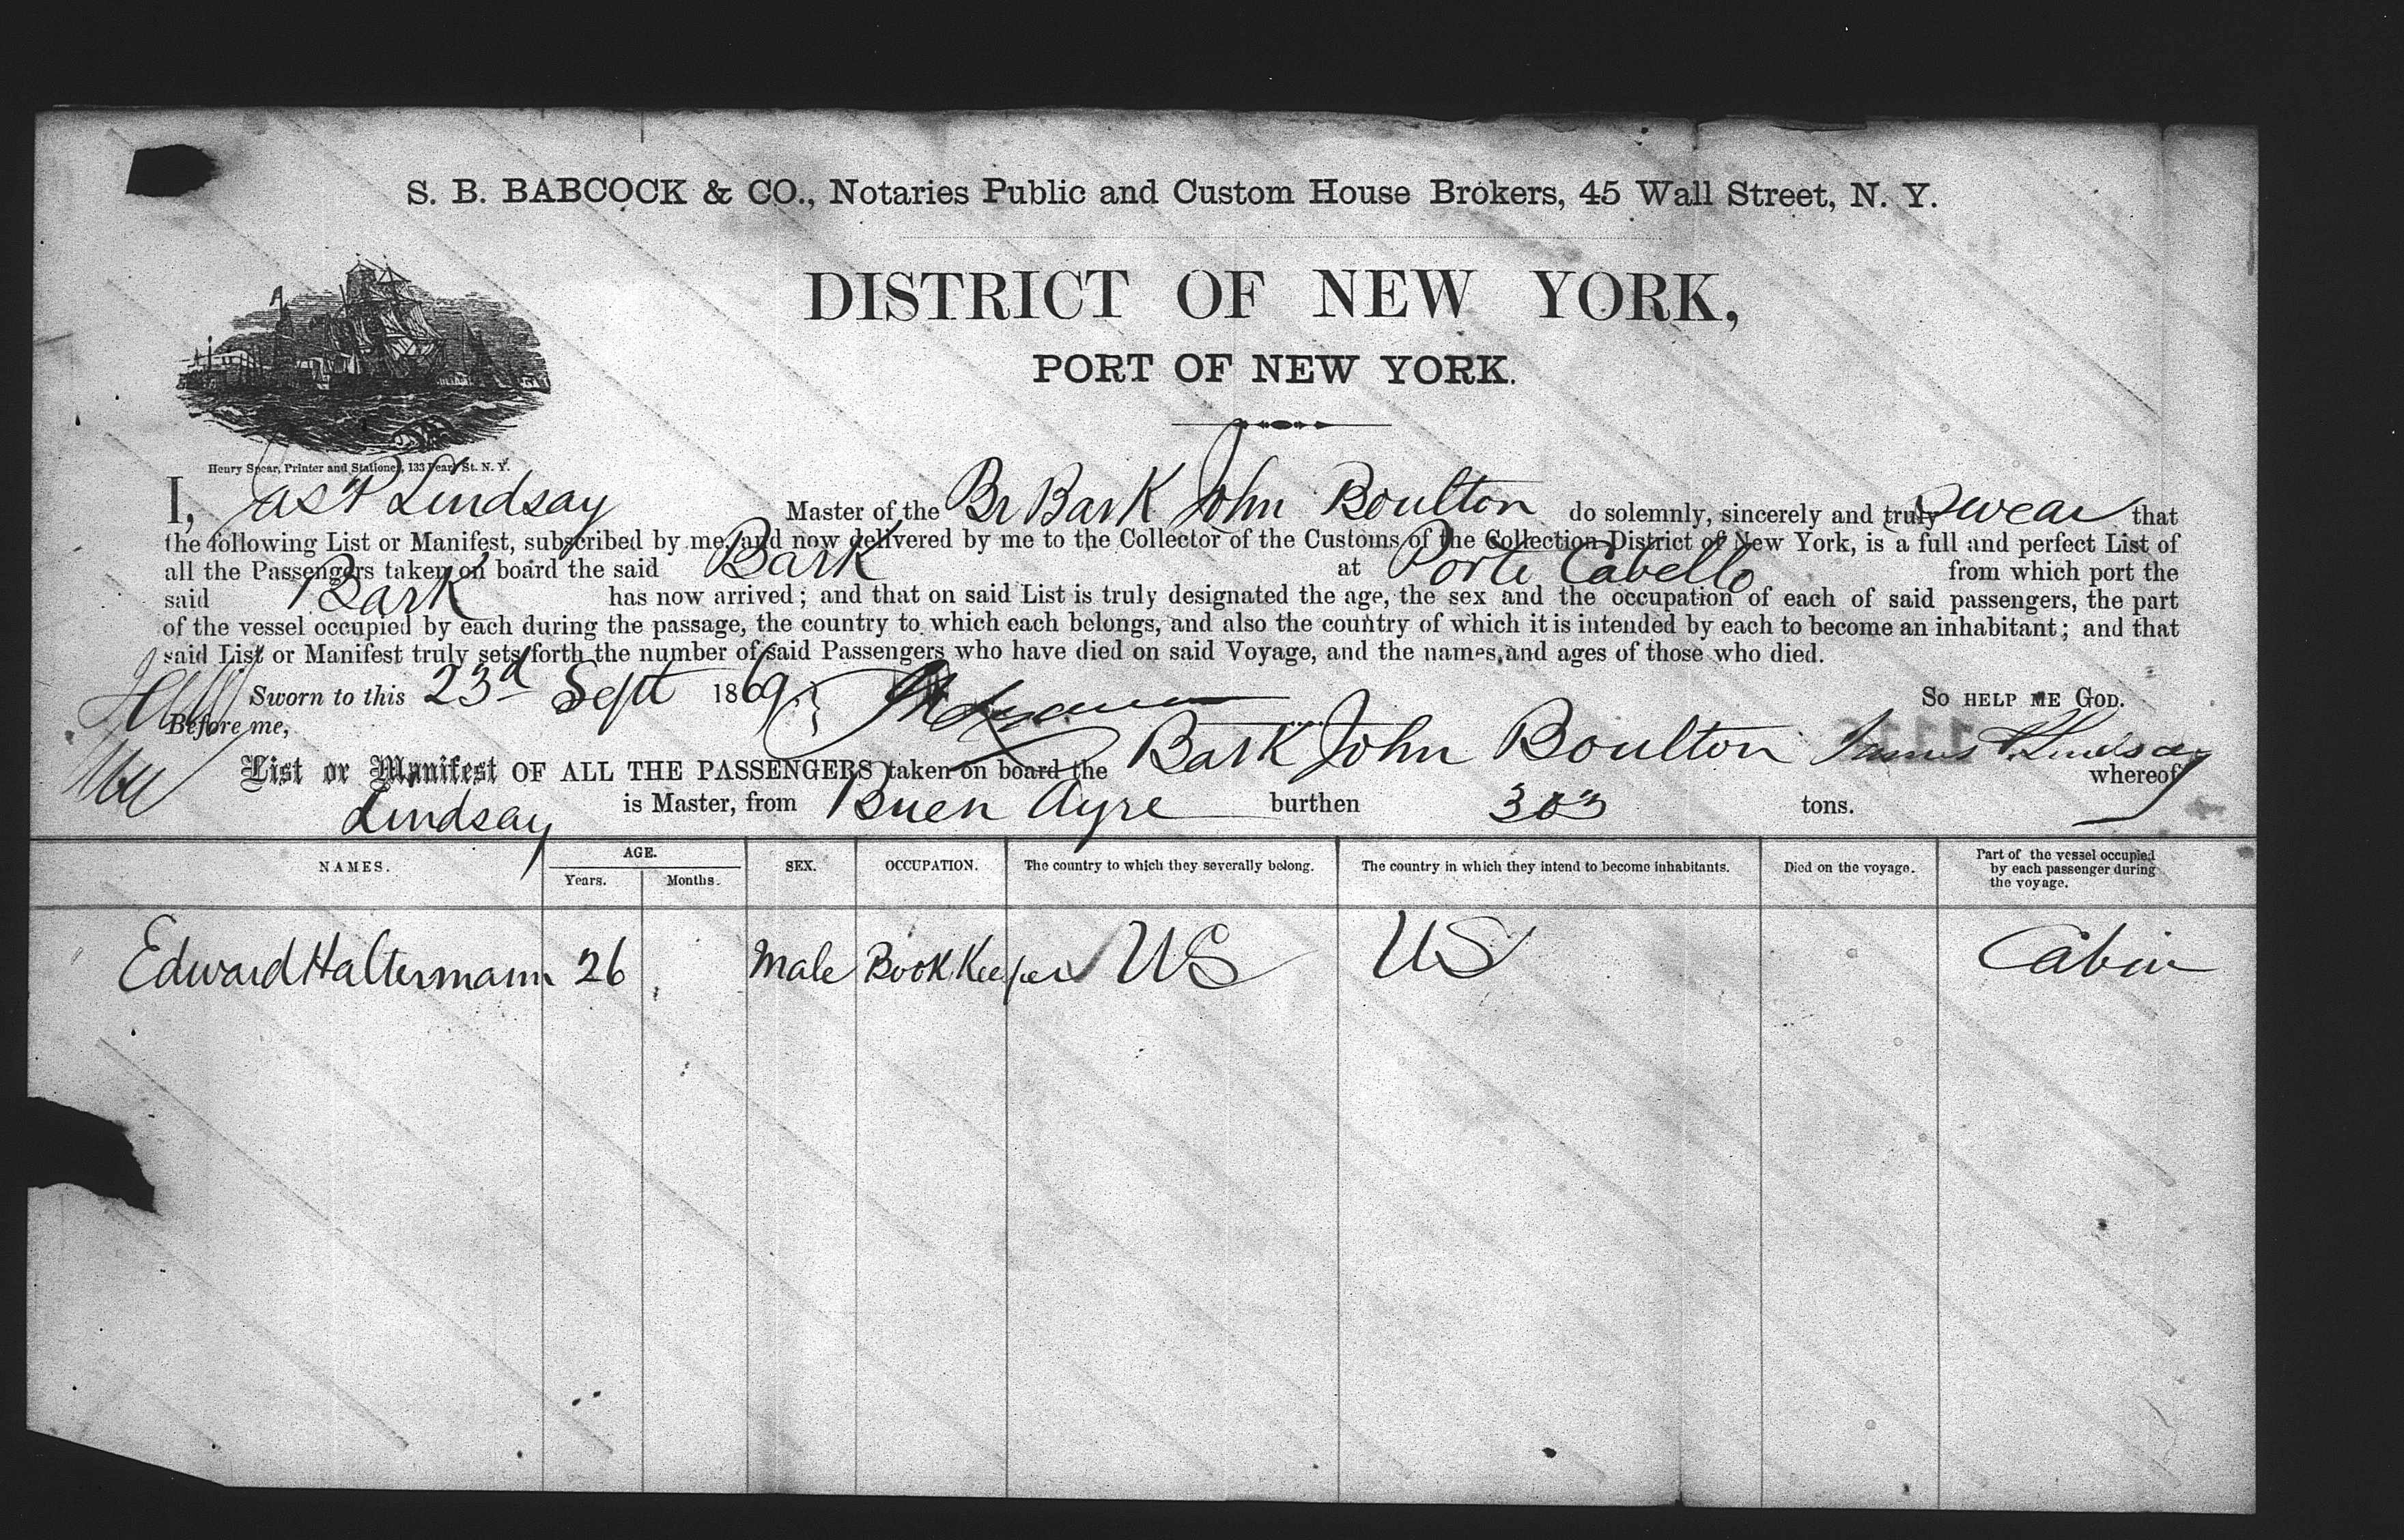 S. B. BABCOCK & CO., Notaries Public and Custom House Brokers, 45 Wall Street, N. Y.
DISTRICT OF NEW YORK,
PORT OF NEW YORK.
Henry Spear, Printer and Stationer, 133 Pearl St. N. Y.
I, Jas P Lindsay Master of the Br Bark John Boulton do solemnly, sincerely and truly swear that
the following List or Manifest, subscribed by me, and now delivered by me to the Collector of the Customs of the Collection District of New York, is a full and perfect List of
all the Passengers taken on board the said Bark at Porto Cabello from which port the
said Bark has now arrived; and that on said List is truly designated the age, the sex and the occupation of each of said passengers, the part
of the vessel occupied by each during the passage, the country to which each belongs, and also the country of which it is intended by each to become an inhabitant; and that
said List or Manifest truly sets forth the number of said Passengers who have died on said Voyage, and the names and ages of those who died.
Sworn to this 23d Sept 1869. So HELP ME GOD.
Before me, James P. Lindsay
List or Manifest OF ALL THE PASSENGERS taken on board the Bark John Boulton whereof
Lindsay is Master, from Buen Ayre burthen 303 tons.
NAMES. AGE. SEX. OCCUPATION. The country to which they severally belong. The country in which they intend to become inhabitants. Died on the voyage. Part of the vessel occupied by each passenger during the voyage.
Years. Months.
Edward Haltermann 26 Male Book Keeper US US Cabin